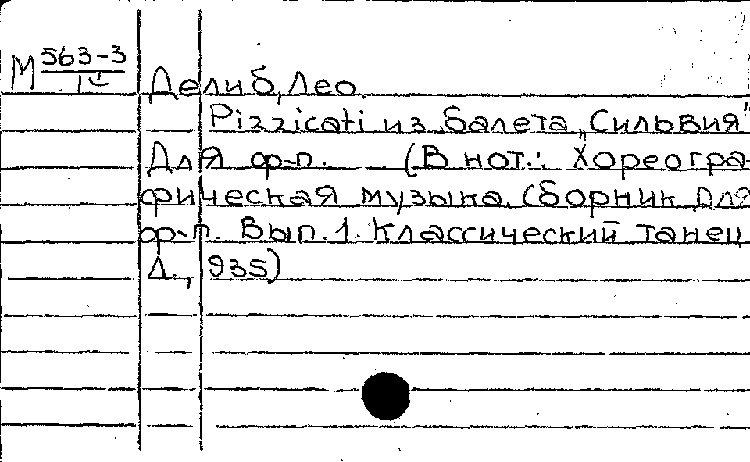 М 563-3
IV
Делиб, Лео.
Pizzicati из балета „Сильвия"
Для ф-п. (В нот.: Хореогра-
фическая музыка. Сборник для
ф-п. Вып. 1. Классический танец
Л., 935)